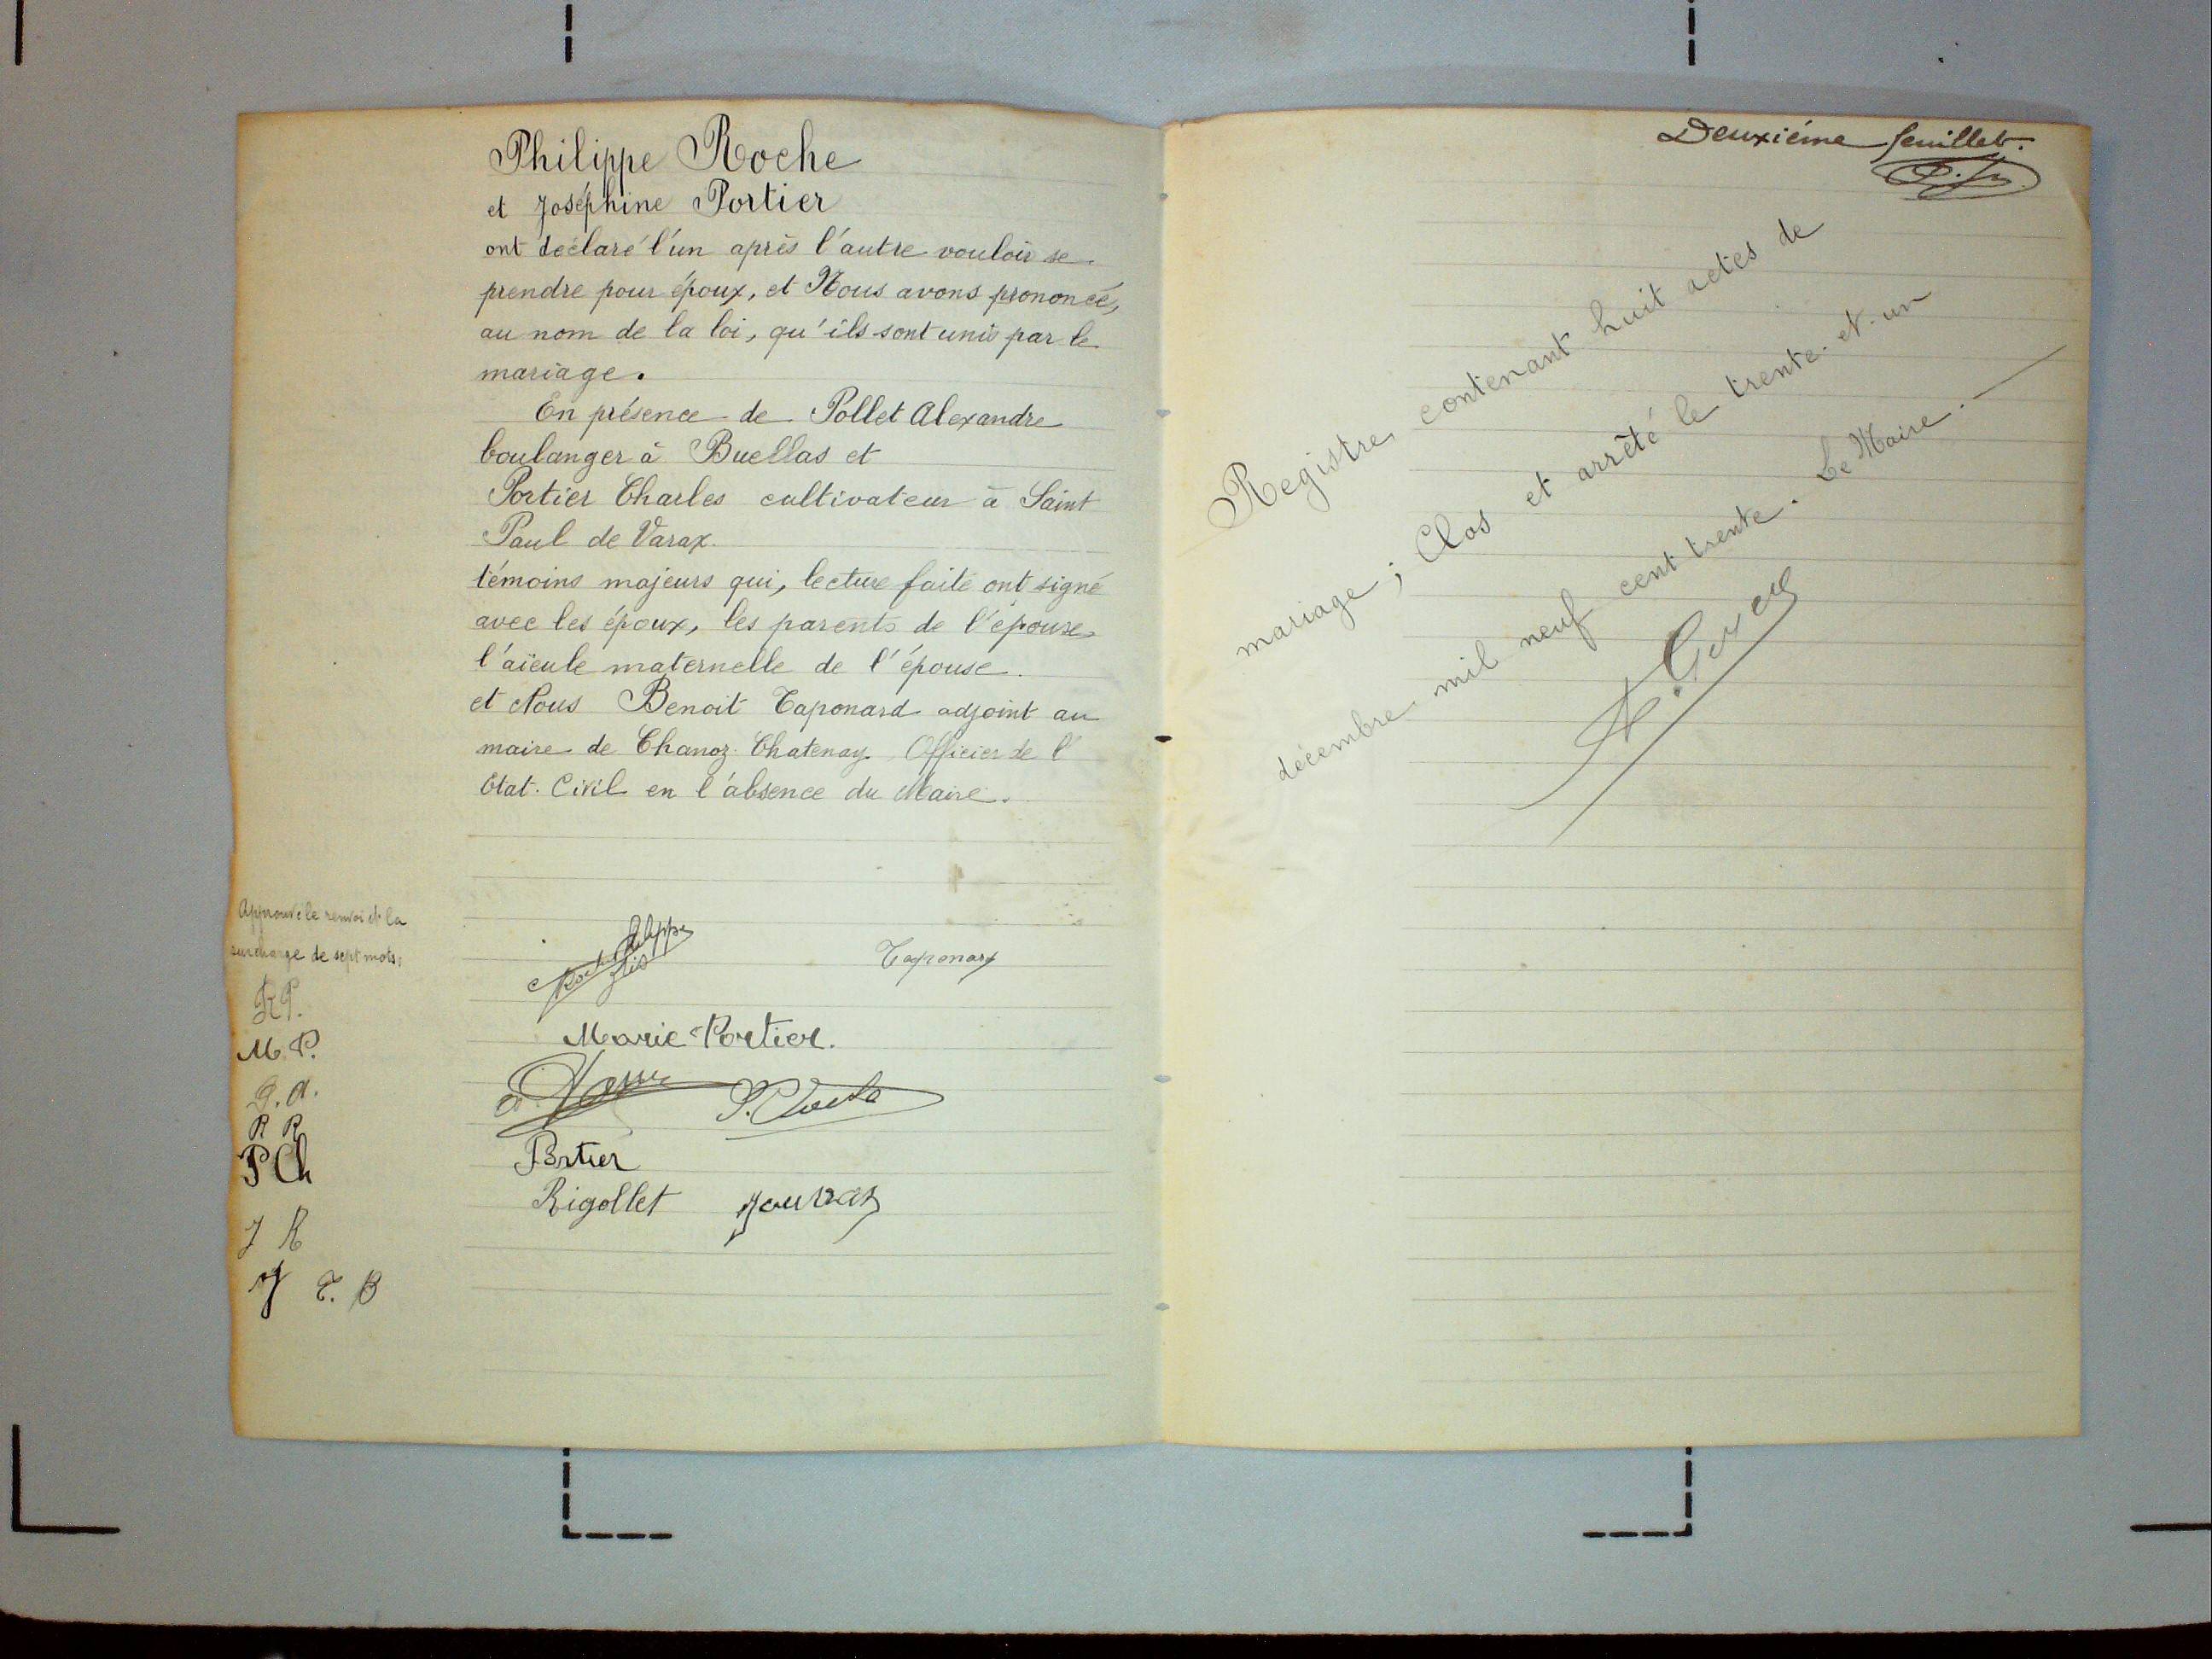 Philippe Roche
et Joséphine Portier
ont déclaré l'un après l'autre vouloir se
prendre pour époux, et Nous avons prononcé,
au nom de la loi, qu'ils sont unis par le
mariage.
En présence de Pollet Alexandre
boulanger à Buellas et
Portier Charles cultivateur à Saint
Paul de Varax.
témoins majeurs qui, lecture faite ont signé
avec les époux, les parents de l'épouse,
l'aïeule maternelle de l'épouse.
et Nous Benoit Taponard adjoint au
maire de Chanoz-Chatenay. Officier de l'
Etat-Civil en l'absence du Maire.
Approuvé le renvoi et la
surcharge de sept mots:
R P.
M. P.
R R
P Ch
J R
J T. B
Roche Philippe
fils
Taponard
Marie Portier.
Portier
Rigollet
Deuxième feuillet.
Registre contenant huit actes de
mariage; Clos et arrêté le trente-et-un
décembre mil neuf cent trente. Le Maire.